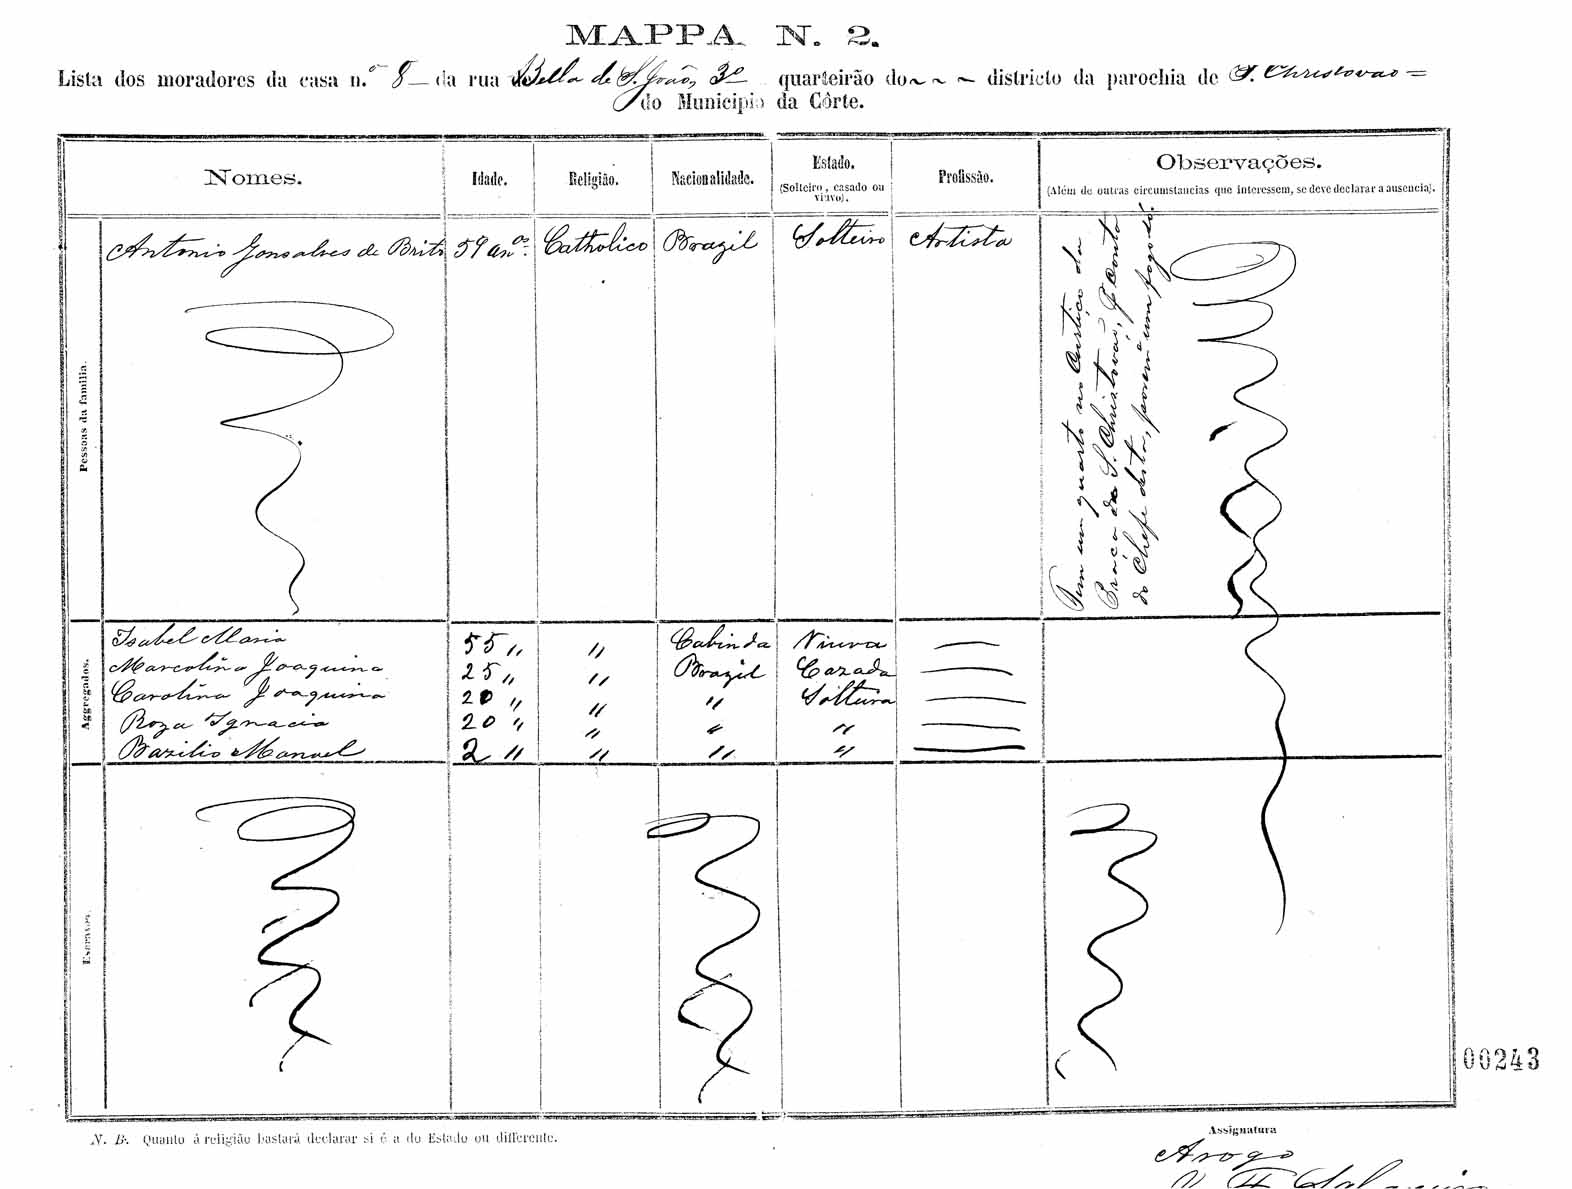 MAPPA N. 2.
Lista dos moradores da casa n.º 8 — da rua Bella de S. João, 3º quarteirão do ~ ~ ~ districto da parochia de S. Christovão =
do Municipio da Côrte.
Nomes. Idade. Religião. Nacionalidade. Estado. Profissão. Observações.
(Solteiro, casado ou viuvo). (Além de outras circumstancias que interessem, se deve declarar a ausencia).
Pessoas da familia.
Antonio Gonsalves de Brito 59 anos. Catholico Brazil Solteiro Artista
Tem um quarto no Curtiço da
Praça de S. Christovão, P. Conta
do Chefe desta, porem é um fogo só.
Aggregados.
Isabel Maria 55 " " Cabinda Viuva —
Marcolina Joaquina 25 " " Brazil Cazada —
Carolina Joaquina 20 " " " Solteira —
Roza Ignacia 20 " " " " —
Bazilio Manoel 2 " " " " —
Escravos.
00243
N. B. Quanto á religião bastará declarar si é a do Estado ou differente.
Assignatura
Arogo